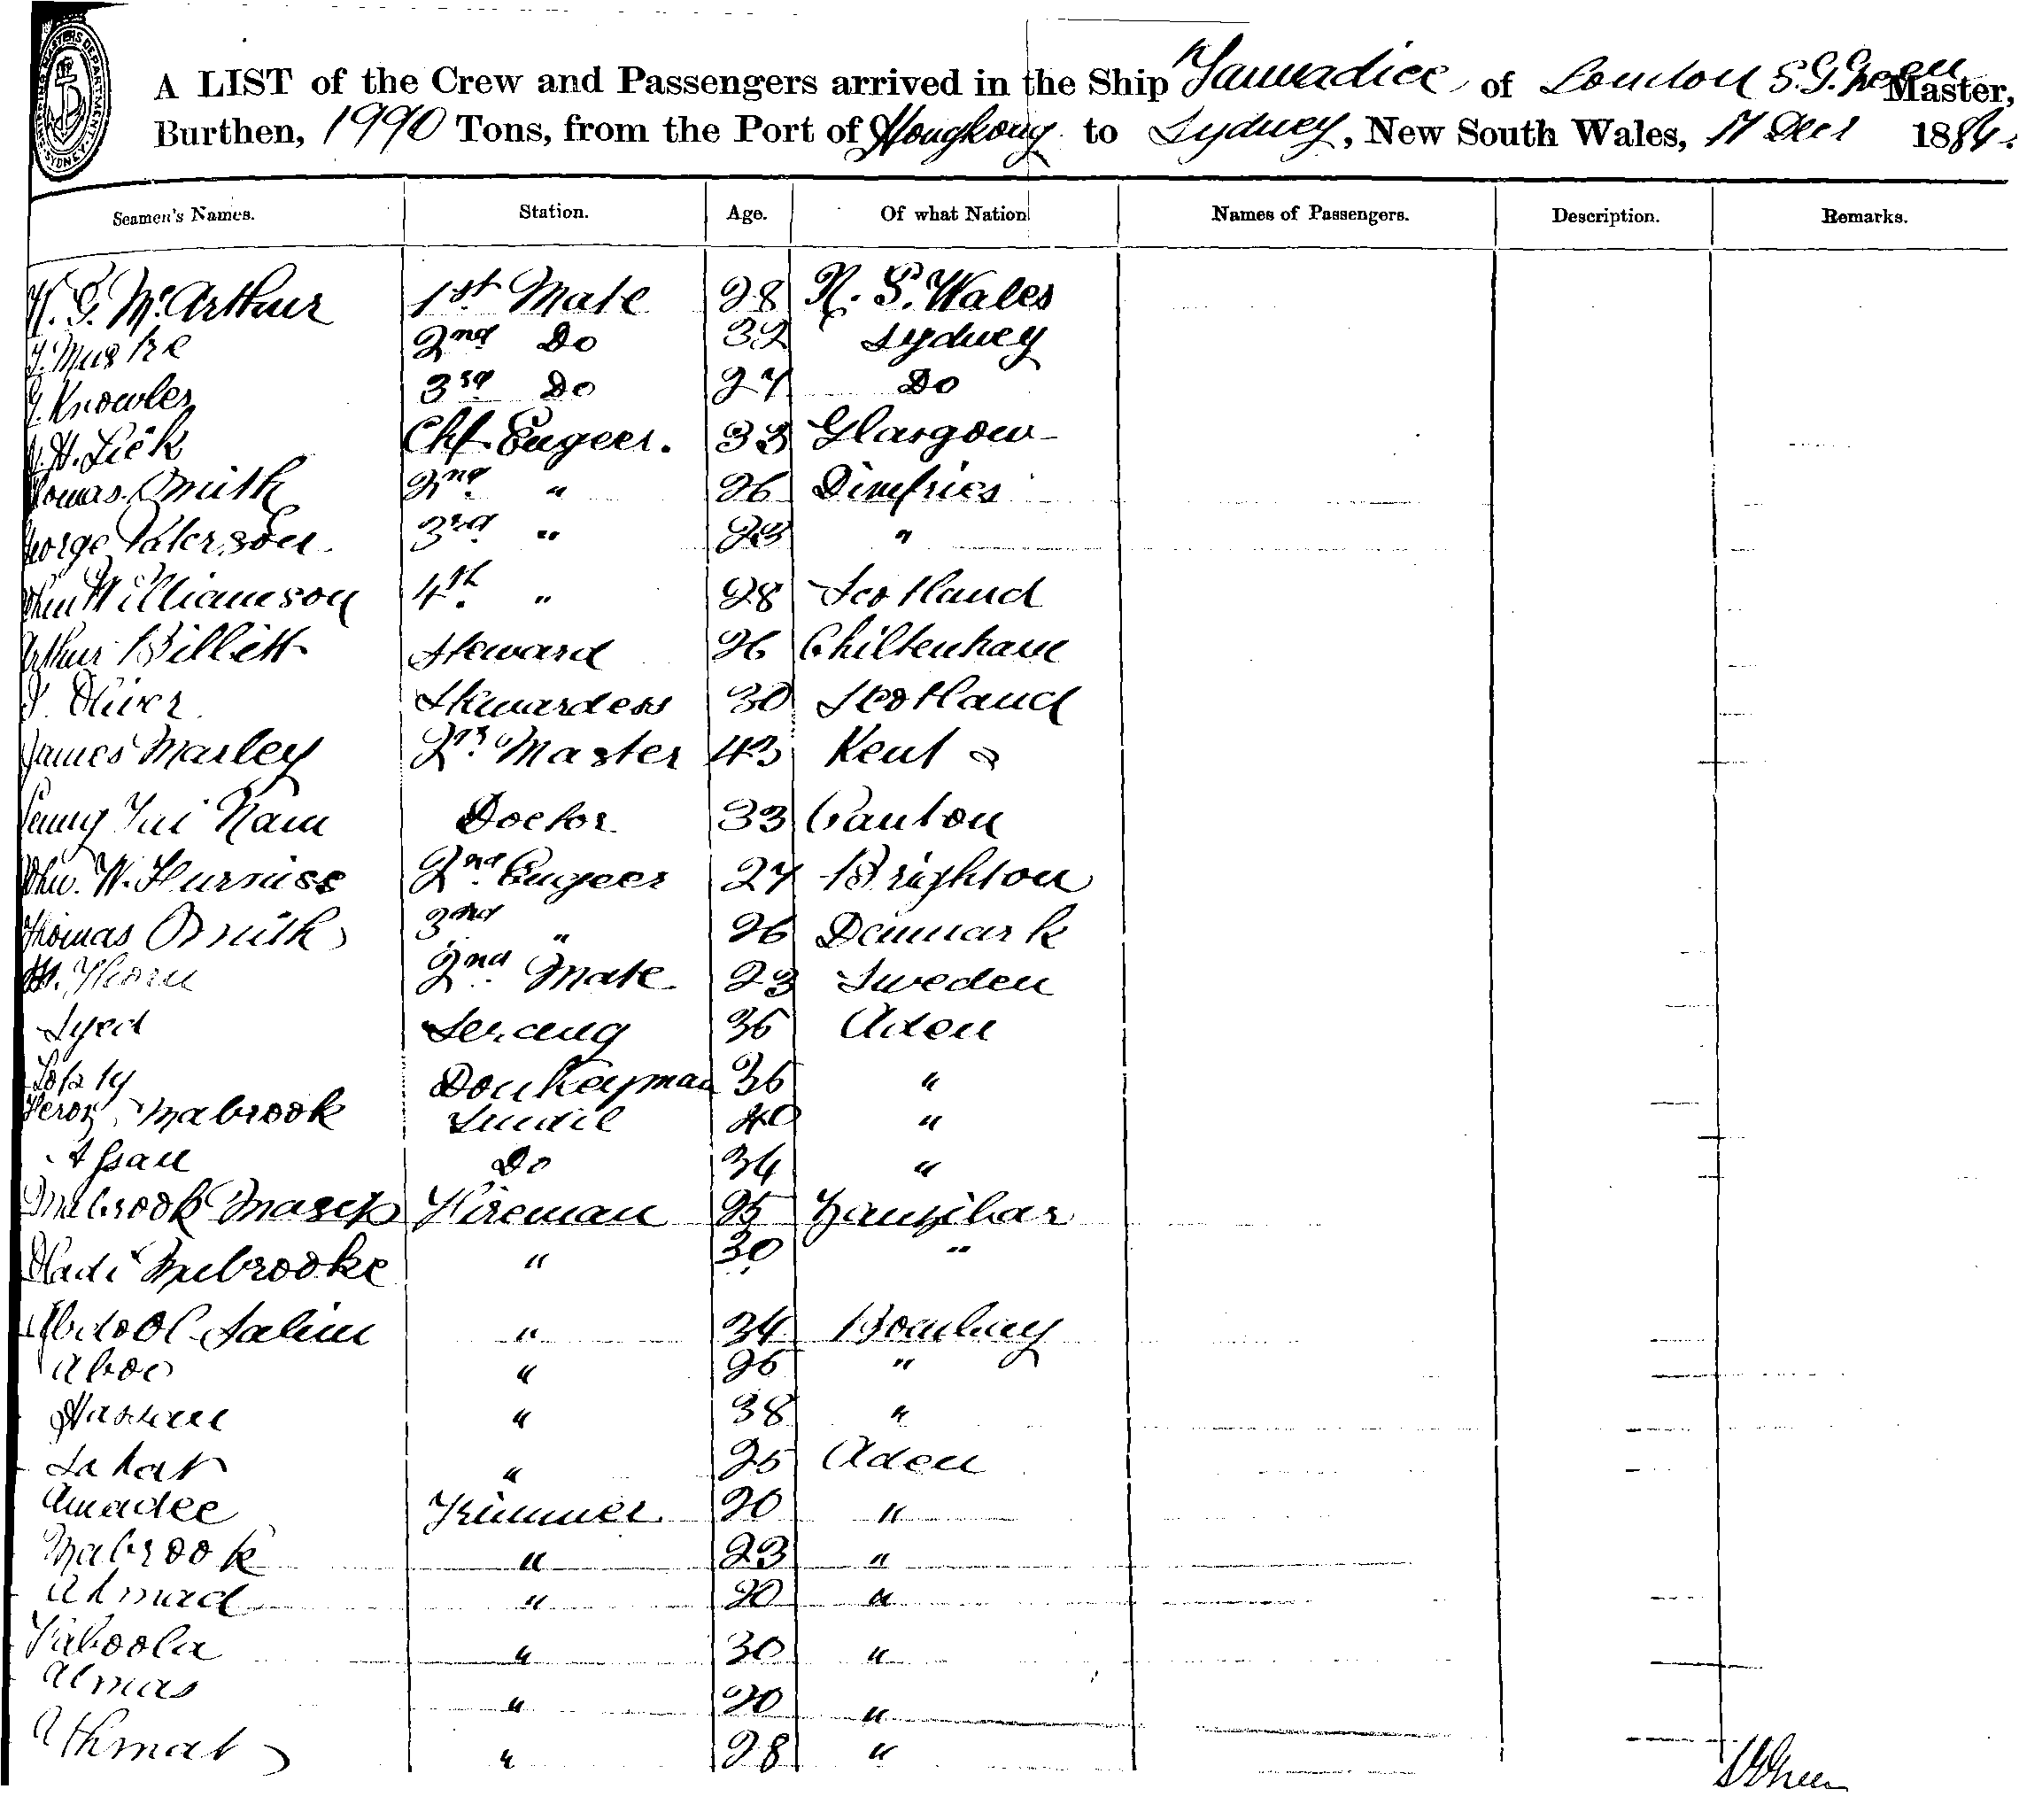 SHIPPING MASTERS DEPARTMENT SYDNEY
A LIST of the Crew and Passengers arrived in the Ship Tannadice of London S. G. Green Master,
Burthen, 1990 Tons, from the Port of Hongkong to Sydney, New South Wales, 17 Decr 1884.
Seamen's Names. Station. Age. Of what Nation Names of Passengers. Description. Remarks.
G. McArthur 1st Mate 28 N. S. Wales
2nd Do 32 Sydney
Knowles 3rd Do 27 Do
H. Lick Chf Engeer. 33 Glasgow
Thomas Smith 2nd " 26 Dimfries
George Paterson 3rd " 23 "
John Williamson 4th " 28 Scotland
Arthur Billett Steward 26 Chiltenham
Oliver Stewardess 30 Scotland
James Marley Qr. Master 43 Kent
Tui Nam Doctor 33 Canton
John. W. Furniss 2nd Engeer 27 Brighton
Thomas Smith 3rd " 26 Denmark
Thorn 2nd Mate 23 Sweden
Syed Serang 36 Aden
Donkeyman 36 "
Feroz Mabrook 40 "
Assan Do 34 "
Mabrook Fireman 25 Zanzibar
Hadi Mubrooke " 30 "
Abdool Salim " 34 Bombay
Aboo " 26 "
Hassan " 38 "
" 25 Aden
Amadee Trimmer 20 "
Mabrook " 23 "
Ahmad " 20 "
" 30 "
Almas " 20 "
Athmat " 28 "
S G Green